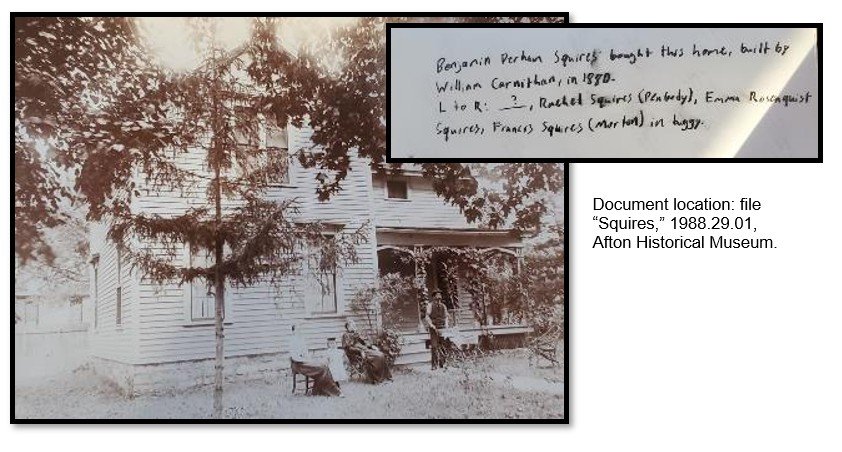 Benjamin Perham Squires bought this home, built by
William Carnithan, in 1880.
L to R: ?, Rachel Squires (Peabody), Emma Rosenquist
Squires, Francis Squires (Morton) in buggy.
Document location: file
“Squires,” 1988.29.01,
Afton Historical Museum.